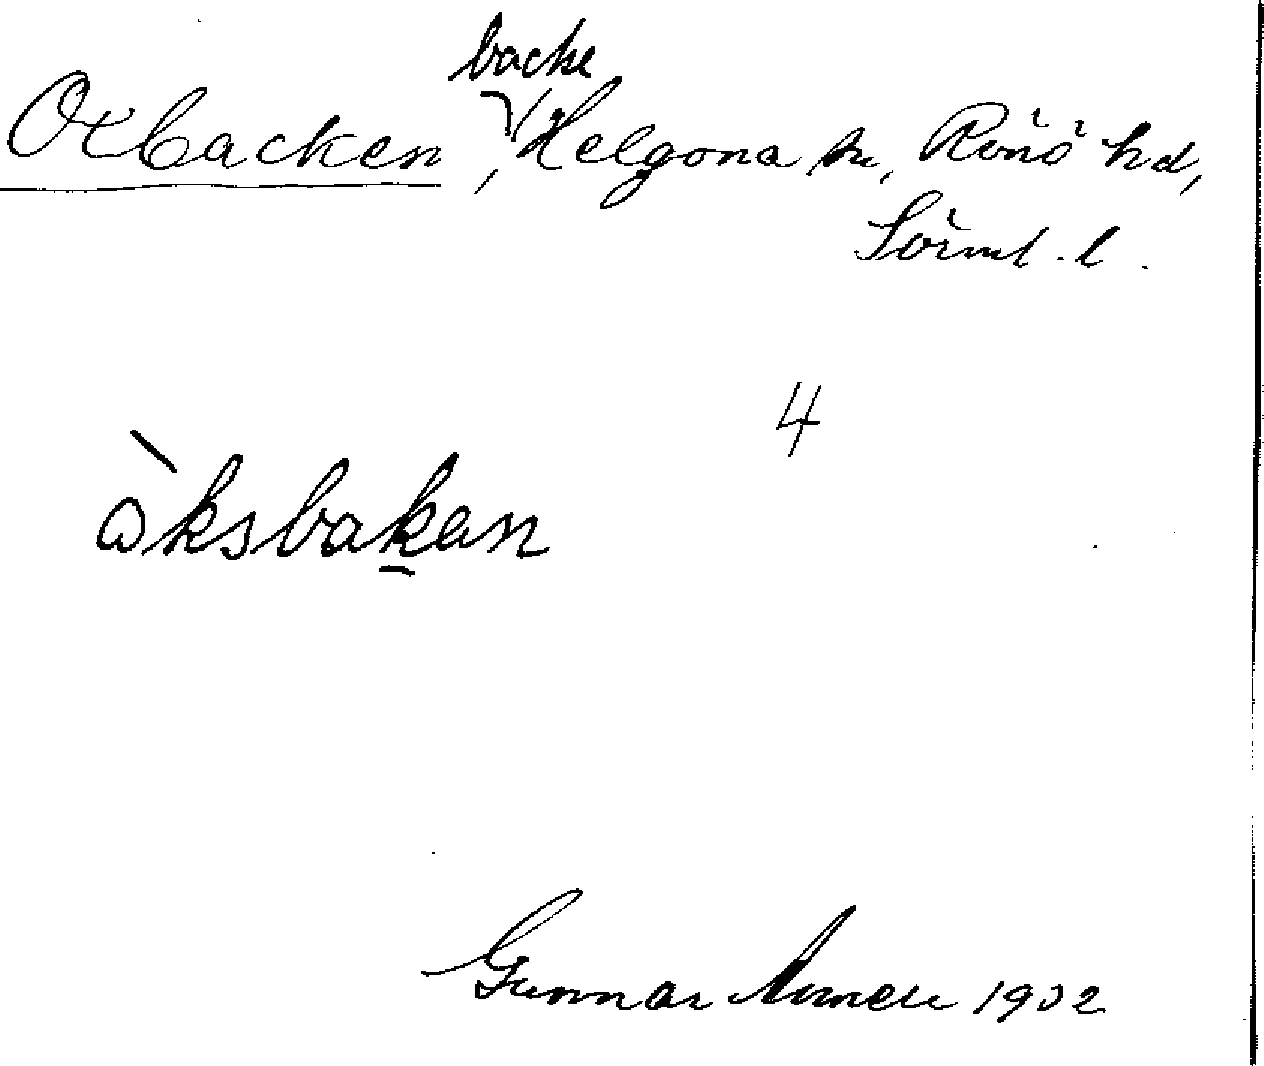 backe
Oxbacken, Helgona sn, Rönö hd,
Sörml. l.
4
ò̀ksbakan
Gunnar 1932